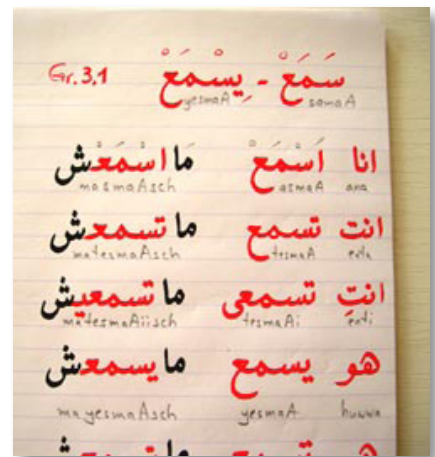 Gr. 3,1 سَمَعْ - يِسْمَعْ
yesmaA samaA
انا اَسْمَعْ مَا اسْمَعْش
masmaAsch asmaA ana
انت تسمع ما تسمعش
matesmaAsch tesmaA enta
انتِ تسمعى ما تسمعيش
matesmaAiisch tesmaAi enti
هو يسمع ما يسمعش
ma yesmaAsch yesmaA huwwa